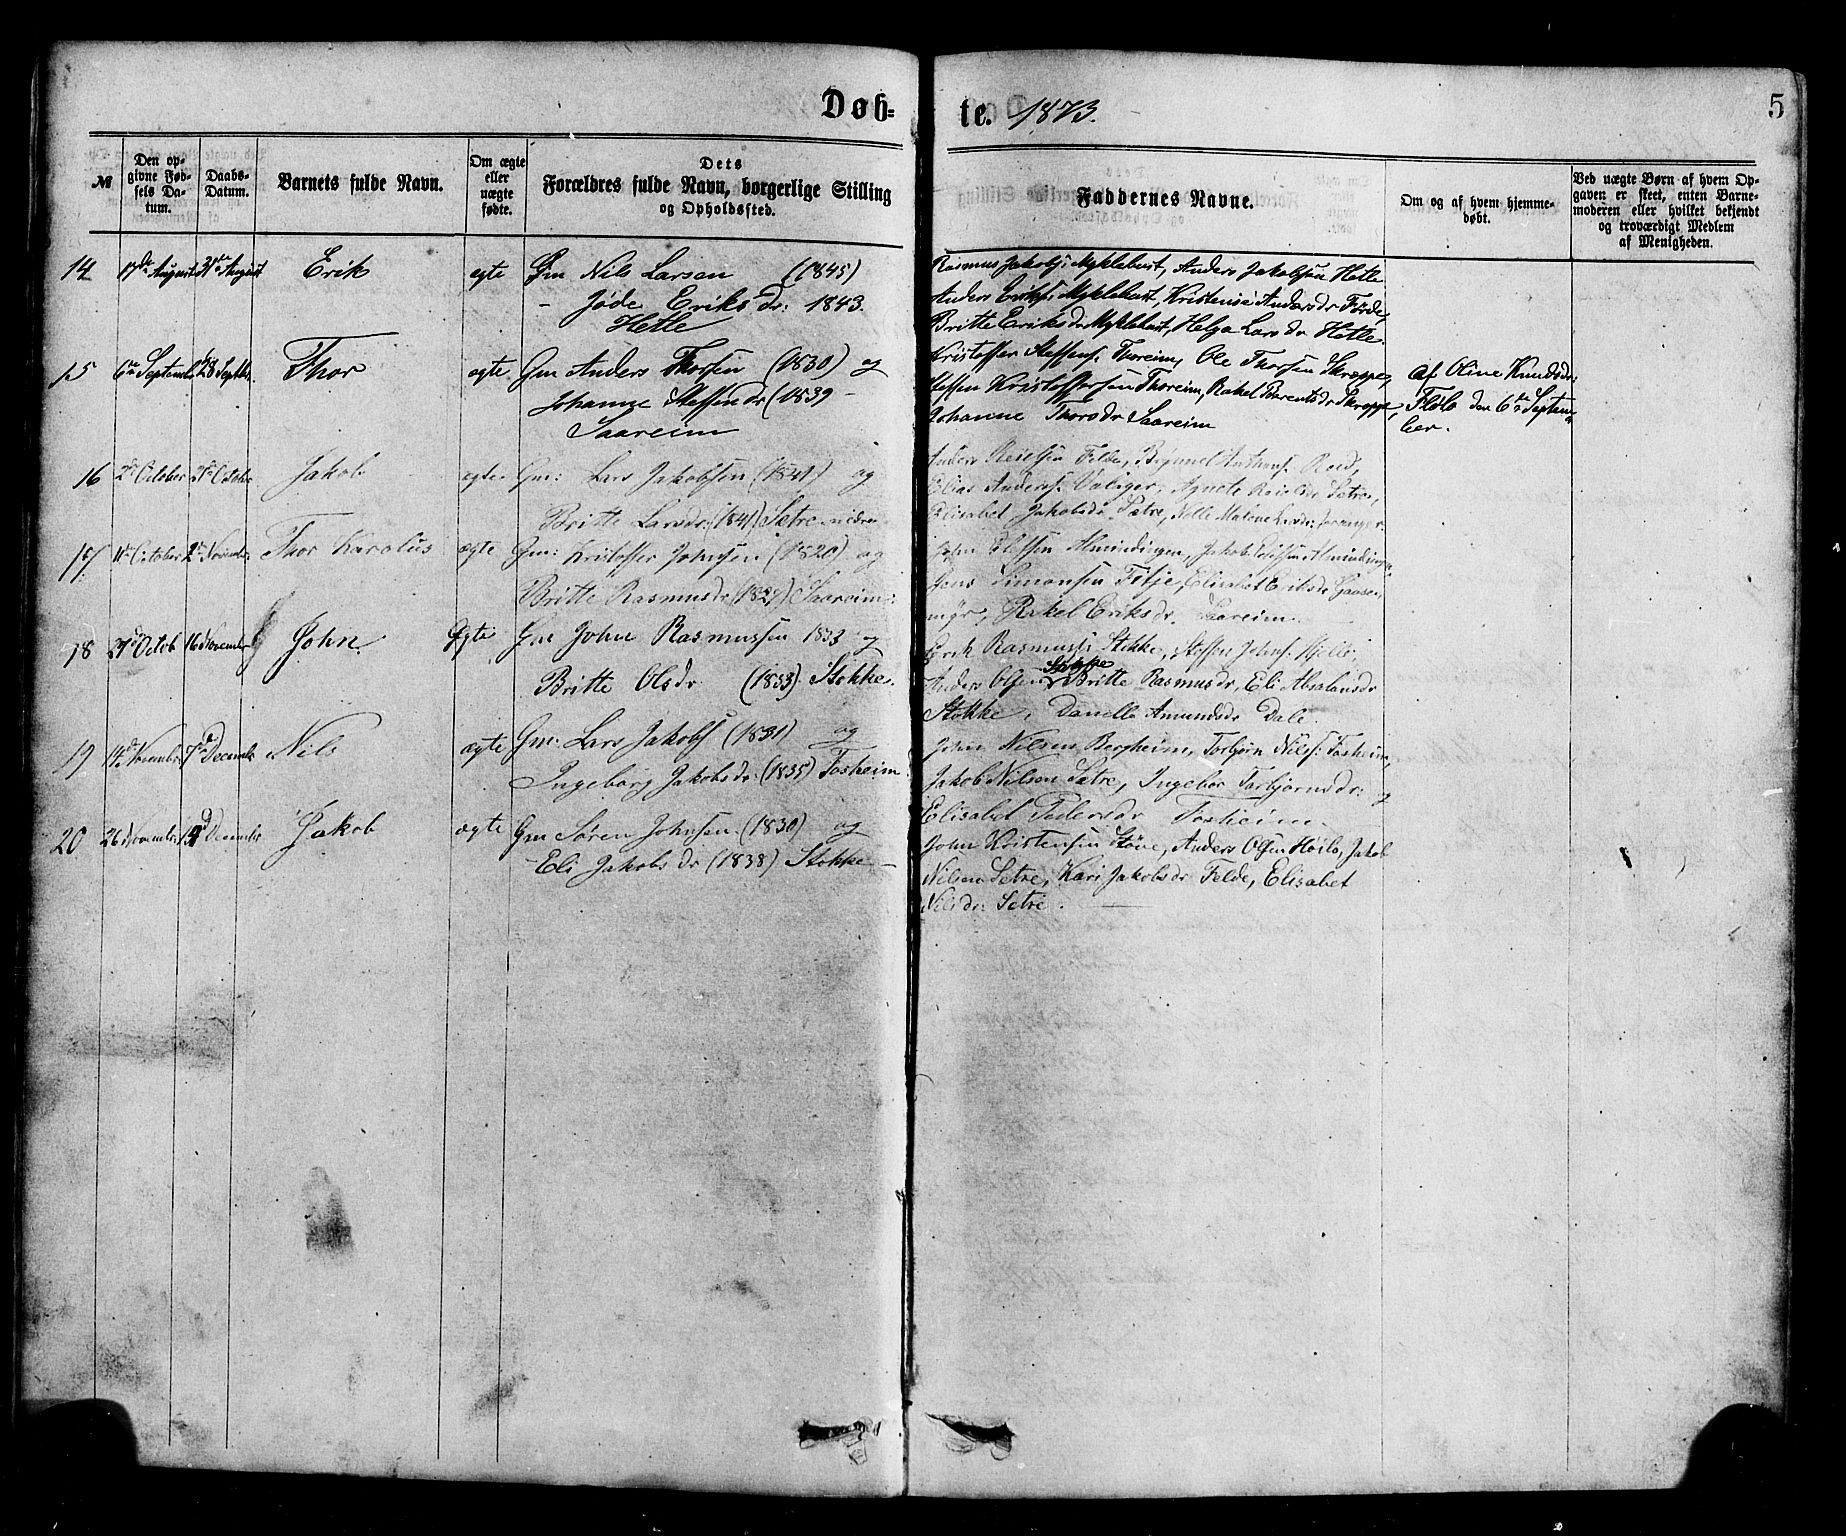 Døb=
te. 1873.
5
№
Den op-
givne Fød-
sels Da-
tum.
Daabs-
Datum.
Barnets fulde Navn.
Om ægte
eller
uægte
fødte.
Dets
Forældres fulde Navn, borgerlige Stilling
og Opholdssted.
Faddernes Navne.
Om og af hvem hjemme-
døbt.
Ved uægte Børn af hvem Op-
gaven er skeet, enten Barne-
moderen eller hvilket bekjendt
og troværdigt Medlem
af Menigheden.
14 17de August 31te August Erik ægte Gm Nils Larsen (1845)
- Jøde Eriksdr: 1843.
Hetle
Rasmus Jakobs: Myklebust, Anders Jakobsen Hetle
Anders Eriks: Myklebust, Kristense Andersdr Førde,
Britte Eriksdr Myklebust, Helga Larsdr Hetle.
15 6te Septemb 28 Septbr. Thor ægte Gm Anders Thorsen (1830) og
Johanne Steffendr (1839 -
Saareim
Kristoffer Steffens: Thoreim, Ole Thorsen Skroppe,
Steffen Kristoffersen Thoreim, Rakel Barentsdr Skroppe,
Johanne Thorsdr Saareim
Af Oline Knudsdr:
Flølo den 6te Septem-
ber.
16 2de October 21de October Jakob ægte Gm: Lars Jakobsen (1841) og
Britte Larsdr: (1841) Sætre nedre
Anders Felde, Brynnel Anthons:
Elias Anders: Agnete Sætre,
Elisabet Jakobsdr Sætre, Nelle Malene Larsdr:
17 October 2de Novemb: Thor Karolus ægte Gm: Kristoffer Johnsen (1820) og
Britte Rasmusdr (1829) Saareim:
John Elessen Almindingen, Jakob Almindingen
Jens Simonsen Fitje, Elisabet Eriksdr Gaasе-
myr, Rakel Eriksdr Saareim.
18 27d Octob 16 November John. Ægte Gm John Rasmussen 1833 og
Britte Olsdr (1833) Stokke.
Erik Rasmuss: Stokke, Steffen Johns: Hjelle,
Stokke
Anders Olsen Britte Rasmusdr, Eli Absalonsdr
Stokke, Danille Amundsdr Dale.
19 14de Novembr 7de Decemb Nils ægte Gm: Lars Jakobs (1831) og
Ingeborg Jakobsdr: (1835) Fosheim.
John Nilsen Bergheim, Torbjørn Nils: Fosheim,
Jakob Nilsen Sætre, Ingebor Torbjørnsdr: og
Elisabet Pedersdr Fosheim.
20 26 November December Jakob ægte Gm Søren Johnsen. (1830) og
- Eli Jakobsdr (1838) Stokke -
John Kristensen Støve, Anders Olsen Høilo, Jakob
Nilsen Sætre, Kari Jakobsdr Felde, Elisabet
Nilsdr: Sætre.